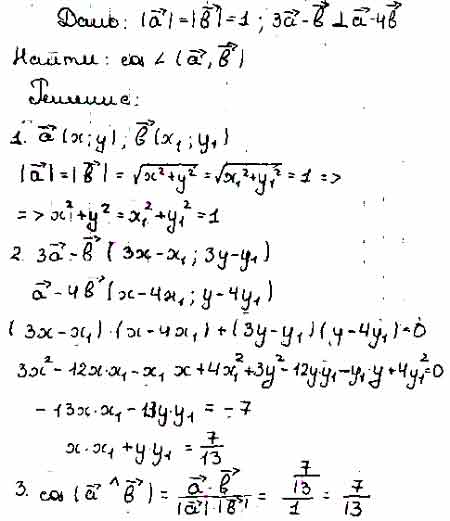 Дано: |a⃗|=|b⃗|=1 ; 3a⃗-b⃗ ⊥ a⃗-4b⃗
Найти: cos ∠ (a⃗, b⃗)
Решение:
1. a⃗ (x; y), b⃗ (x₁; y₁)
|a⃗|=|b⃗| = √x²+y² = √x₁²+y₁² = 1 =>
=> x²+y² = x₁²+y₁² = 1
2. 3a⃗-b⃗ (3x-x₁; 3y-y₁)
a⃗-4b⃗ (x-4x₁; y-4y₁)
(3x-x₁)·(x-4x₁)+(3y-y₁)(y-4y₁)=0
3x²-12x·x₁-x₁ x+4x₁²+3y²-12y·y₁-y₁·y+4y₁²=0
-13x·x₁-13y·y₁ = -7
x·x₁+y·y₁ = 7/13
3. cos (a⃗ ^ b⃗) = a⃗·b⃗ / |a⃗|·|b⃗| = 7/13 / 1 = 7/13